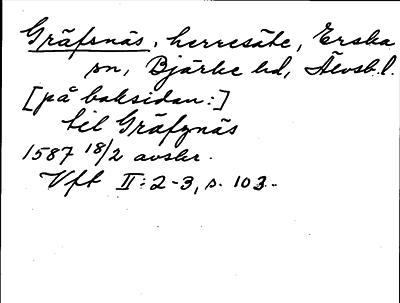 Gräfsnäs, herresäte, Erska
sn, Bjärke hd, Älvsb. l.
[på baksidan:]
til Gräfznäs
1587 18/2 avskr.
Vft II: 2-3, s. 103.